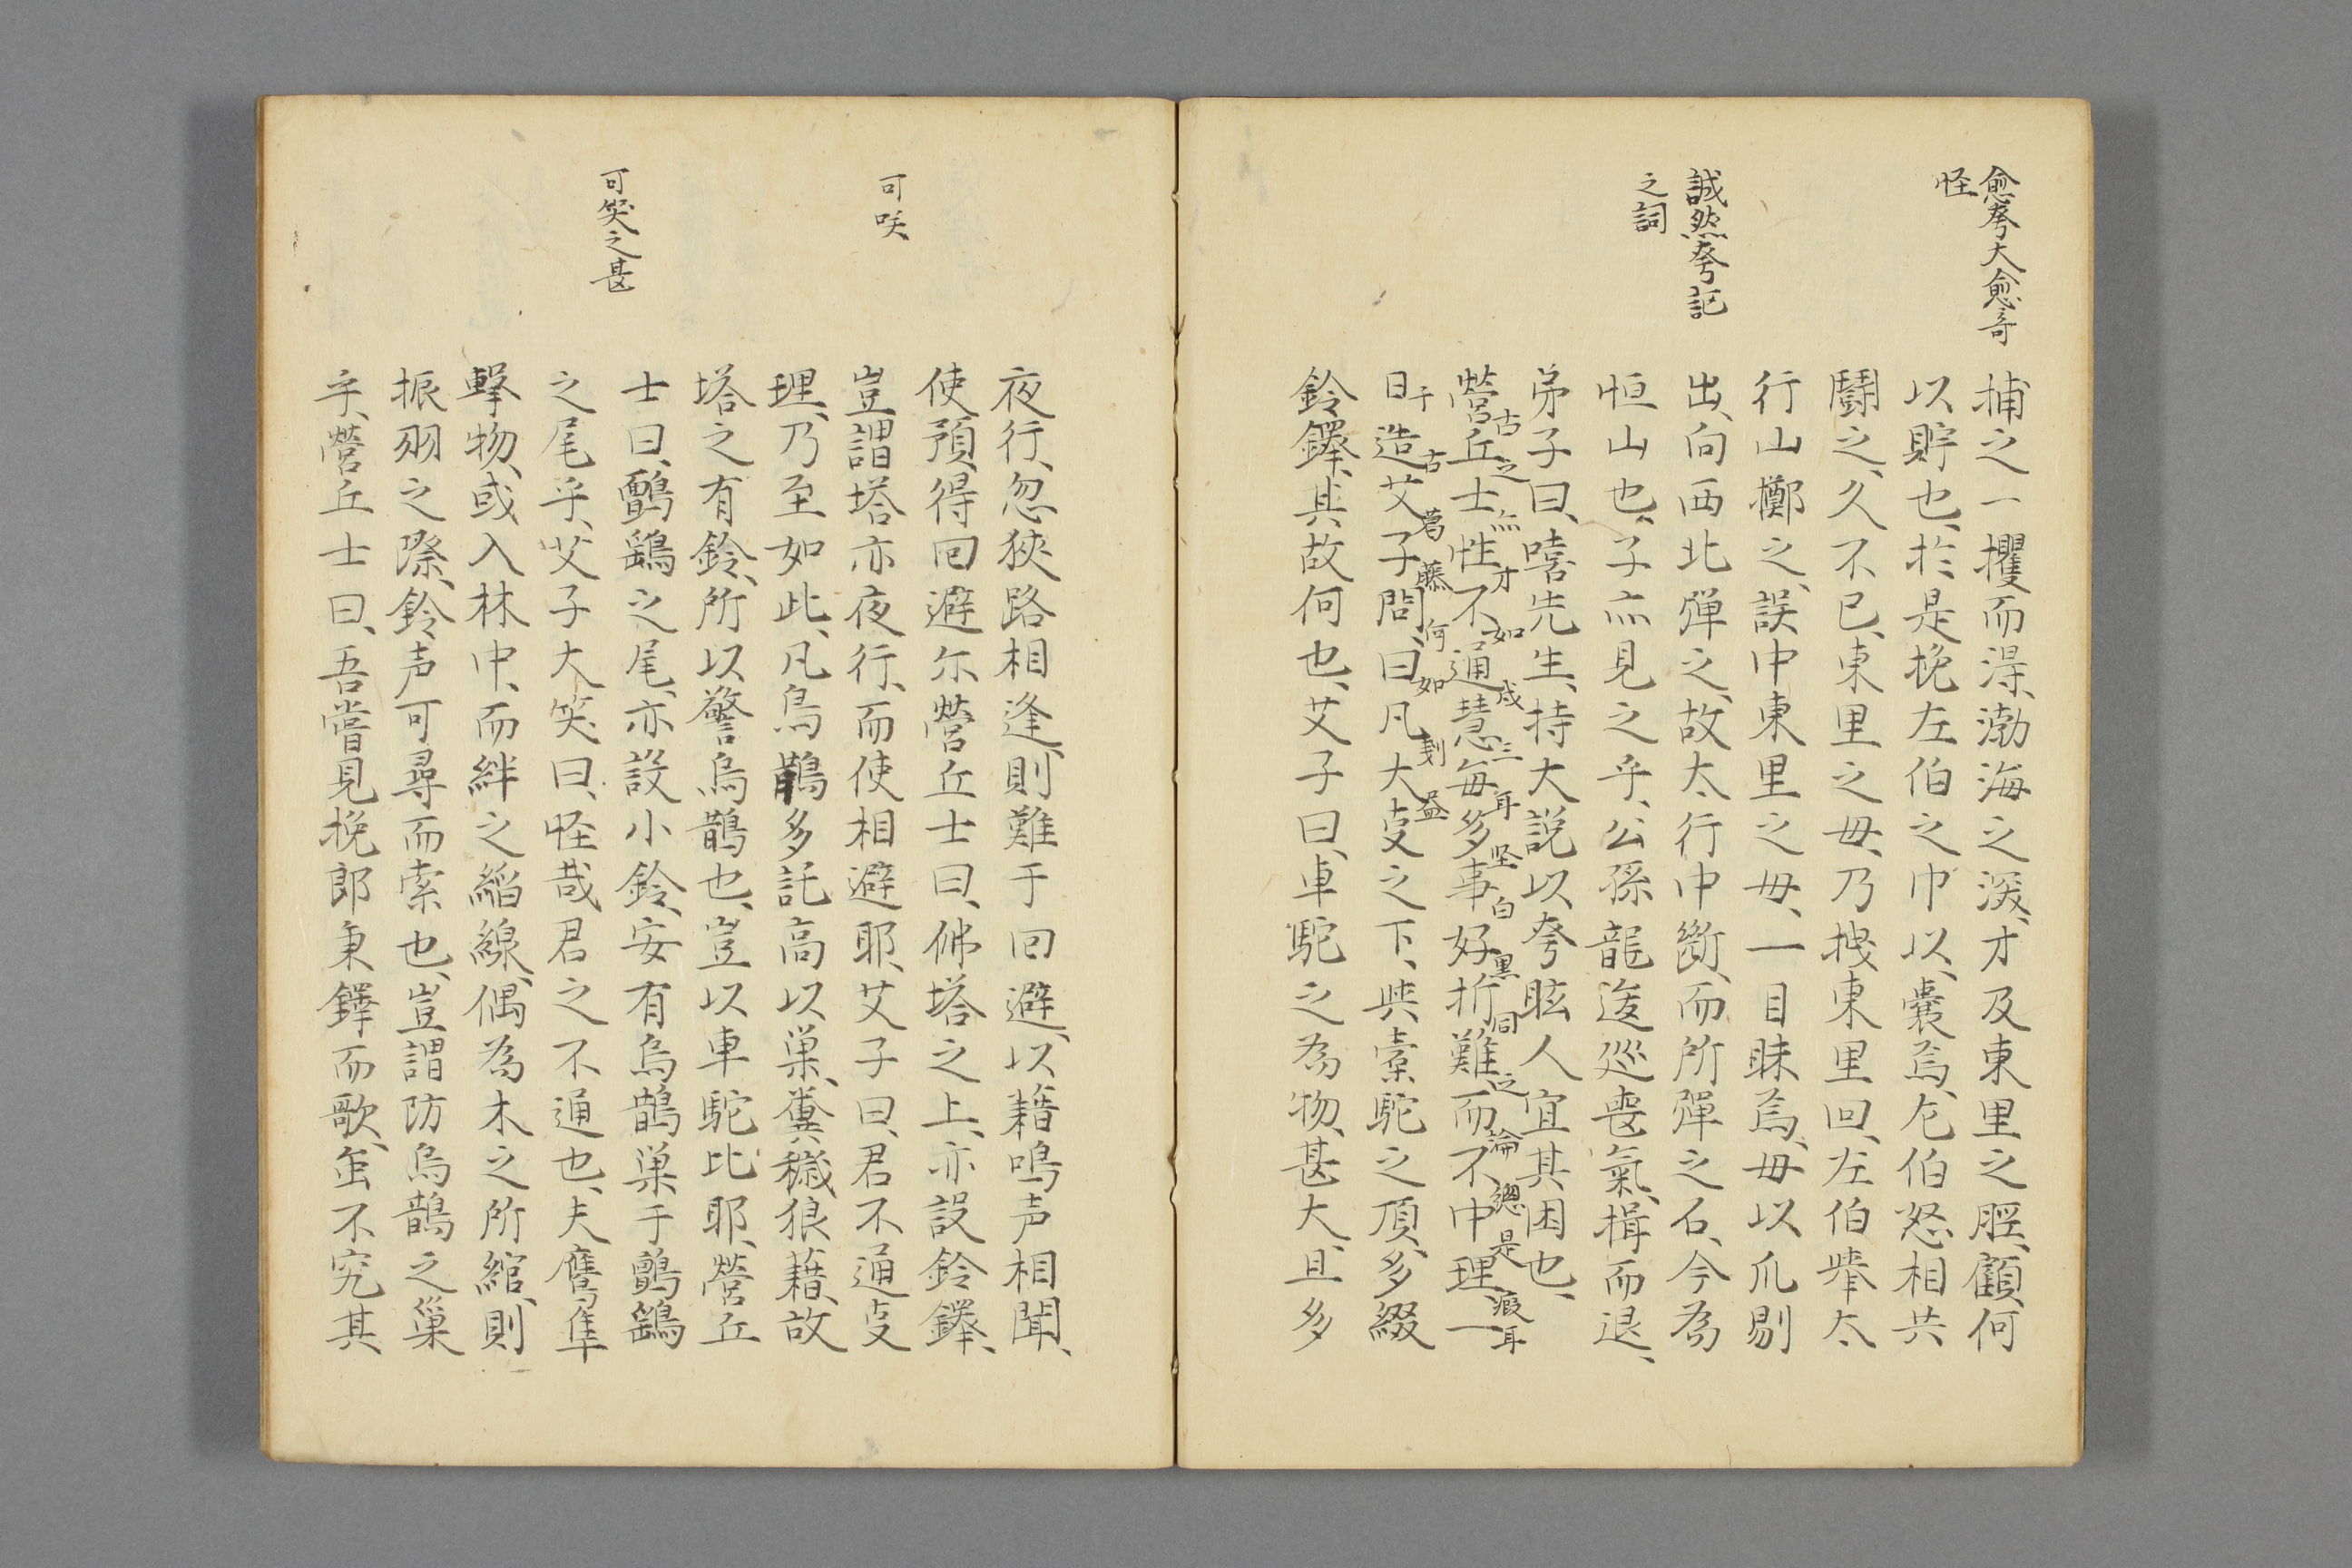 愈夸大愈奇
怪
捕之一攫而淂、渤海之深、才及東里之脛、顧何
以貯也、於是挽左伯之巾以囊焉、左伯怒相共
鬪之、久不已、東里之毋、乃拽東里回、左伯舉太
行山擲之、誤中東里之毋、一目眛焉、毋以爪剔
誠然夸記
之詞
出、向西北彈之、故太行中斷、而所彈之石、今為
恒山也、子亦見之乎、公孫龍逡巡喪氣、揖而退、
弟子曰、嘻先生、持大說以夸眩人宜其困也、
古之 才如成三耳坚白黒同之論總是瘕耳
營丘士性不通慧每多事好折難而不中理、一
于古葛藤何如 益
日造艾子問、曰凡大車之下、與橐駝之頂、多綴
鈴鐸、其故何也、艾子曰、車駝之為物、甚大、且多
夜行、忽狹路相逢、則難于回避、以藉鳴声相聞、
使預得回避尔營丘士曰、佛塔之上、亦設鈴鐸、
可咲、
豈謂塔亦夜行、而使相避耶、艾子曰、君不通叓
理、乃至如此、凡鳥鵲多託高以巢、糞穢狼藉、故
塔之有鈴、所以警烏鵲也、豈以車駝比耶、營丘
可笑之甚
士曰、鸇鷂之尾、亦設小鈴、安有烏鵲巢于鸇鷂
之尾乎、艾子大笑曰、怪哉君之不通也、夫鷹隼
擊物、或入林中、而絆之縚線、偶為木之所綰、則
振羽之際、鈴声可尋而索也、豈謂防烏鵲之巢
乎、營丘士曰、吾嘗見挽郎秉鐸而歌、虽不究其